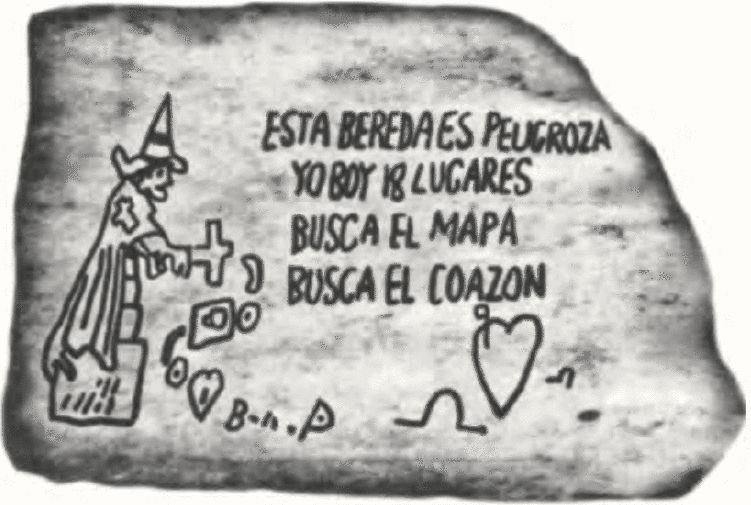 ESTA BEREDA ES PELIGROZA
YO BOY 18 LUGARES
BUSCA EL MAPA
BUSCA EL COAZON